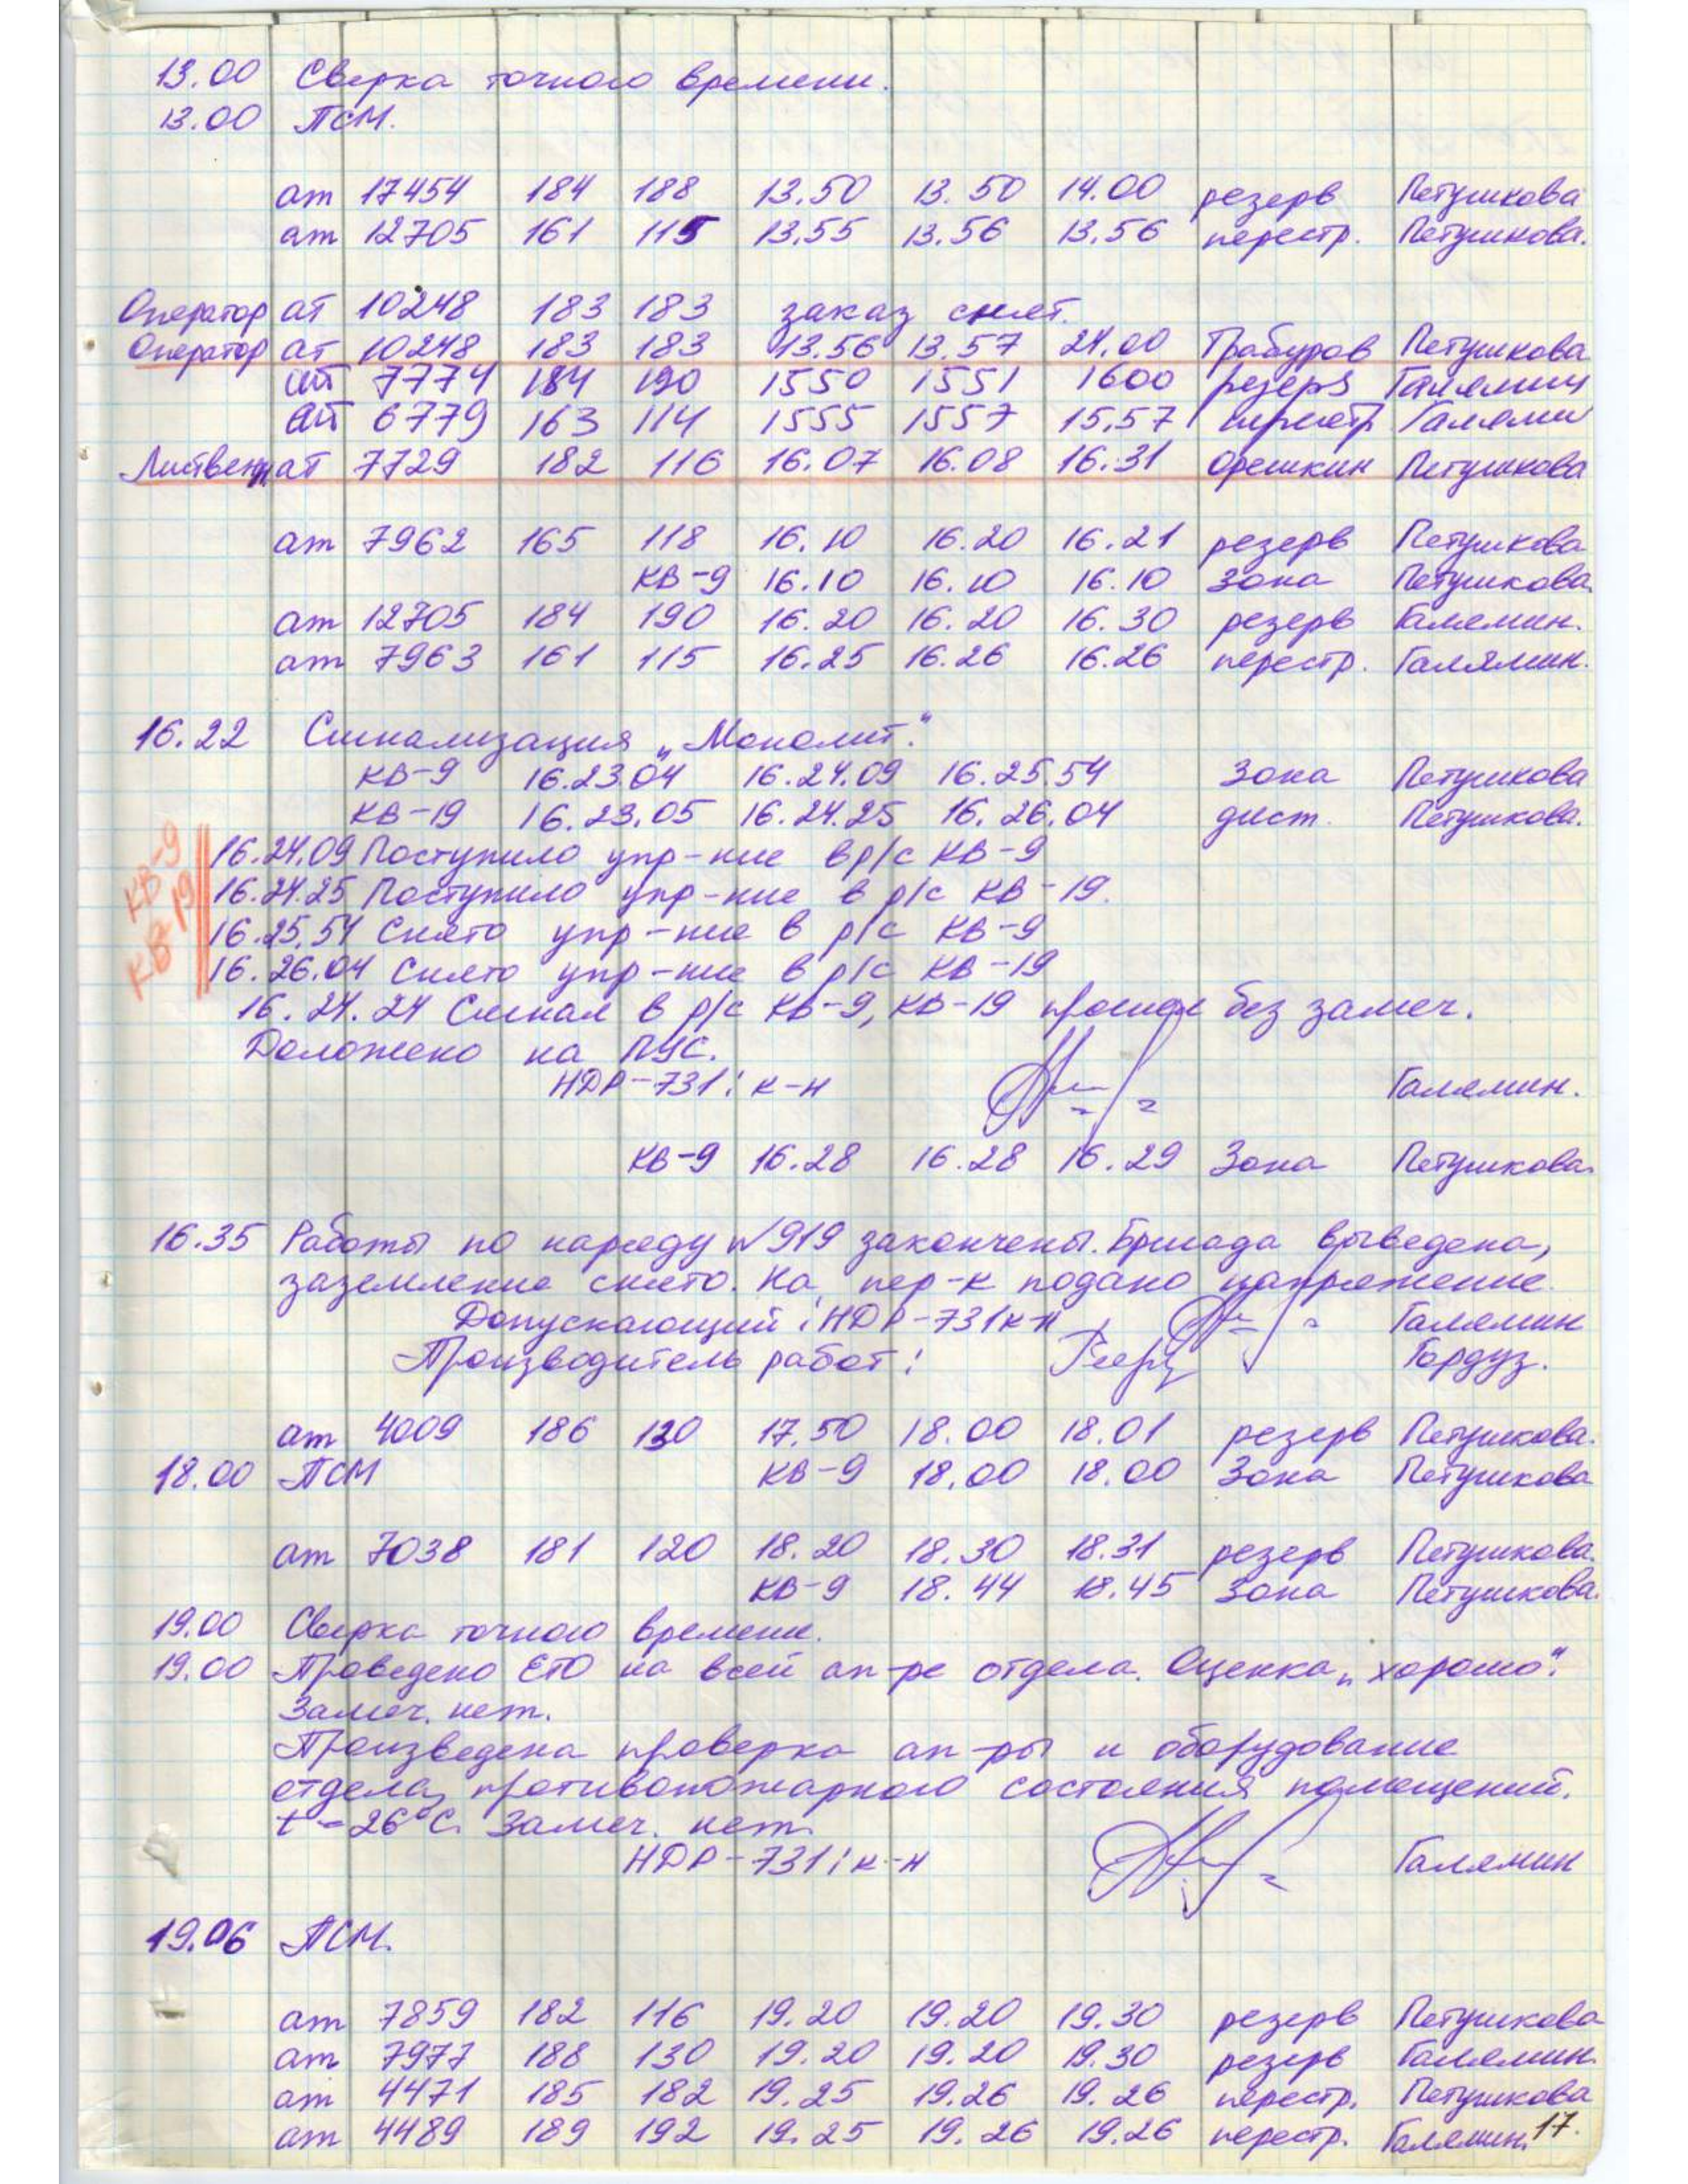 13.00 Сверка точного времени.
13.00 ПСМ.
ат 17454 184 188 13.50 13.50 14.00 резерв Петушкова
ат 12705 161 115 13.55 13.56 13.56 перестр. Петушкова.
Оператор ат 10248 183 183 заказ снят.
Оператор ат 10248 183 183 13.56 13.57 24.00 Грабуров Петушкова
ат 7774 184 190 1550 1551 1600 резерв Галямин
ат 6779 163 114 1555 1557 15.57 перестр Галямин
ат 7729 182 116 16.07 16.08 16.31 Орешкин Петушкова
ат 7962 165 118 16.10 16.20 16.21 резерв Петушкова
КВ-9 16.10 16.10 16.10 Зона Петушкова.
ат 12705 184 190 16.20 16.20 16.30 резерв Галямин.
ат 7963 161 115 16.25 16.26 16.26 перестр. Галямин.
16.22 Сигнализация „Монолит".
КВ-9 16.23.04 16.24.09 16.25.54 Зона Петушкова
КВ-19 16.23.05 16.24.25 16.26.04 дист. Петушкова.
КВ-9
КВ-19
16.24.09 Поступило упр-ние в р/с КВ-9
16.24.25 Поступило упр-ние в р/с КВ-19.
16.25.54 Снято упр-ние в р/с КВ-9
16.26.04 Снято упр-ние в р/с КВ-19
16.24.24 Сигнал в р/с КВ-9, КВ-19 прошел без замеч.
Доложено на ПУС.
НДР-731: к-н Галямин.
КВ-9 16.28 16.28 16.29 Зона Петушкова.
16.35 Работы по наряду №919 закончены. Бригада выведена,
заземление снято. На пер-к подано напряжение.
Допускающий: НДР-731 к-н Галямин
Производитель работ: Гордуз.
ат 4009 186 130 17.50 18.00 18.01 резерв Петушкова.
18.00 ПСМ КВ-9 18.00 18.00 Зона Петушкова
ат 7038 181 120 18.20 18.30 18.31 резерв Петушкова.
КВ-9 18.44 18.45 Зона Петушкова.
19.00 Сверка точного времени.
19.00 Проведено ЕТО на всей ап-ре отдела. Оценка „хорошо".
Замеч. нет.
Произведена проверка ап-ры и оборудование
отдела, противопожарного состояния помещений.
t-26°С. Замеч. нет.
НДР-731: к-н Галямин
19.06 ПСМ.
ат 7859 182 116 19.20 19.20 19.30 резерв Петушкова
ат 7977 188 130 19.20 19.20 19.30 резерв Галямин.
ат 4471 185 182 19.25 19.26 19.26 перестр. Петушкова
ат 4489 189 192 19.25 19.26 19.26 перестр. Галямин.
17.